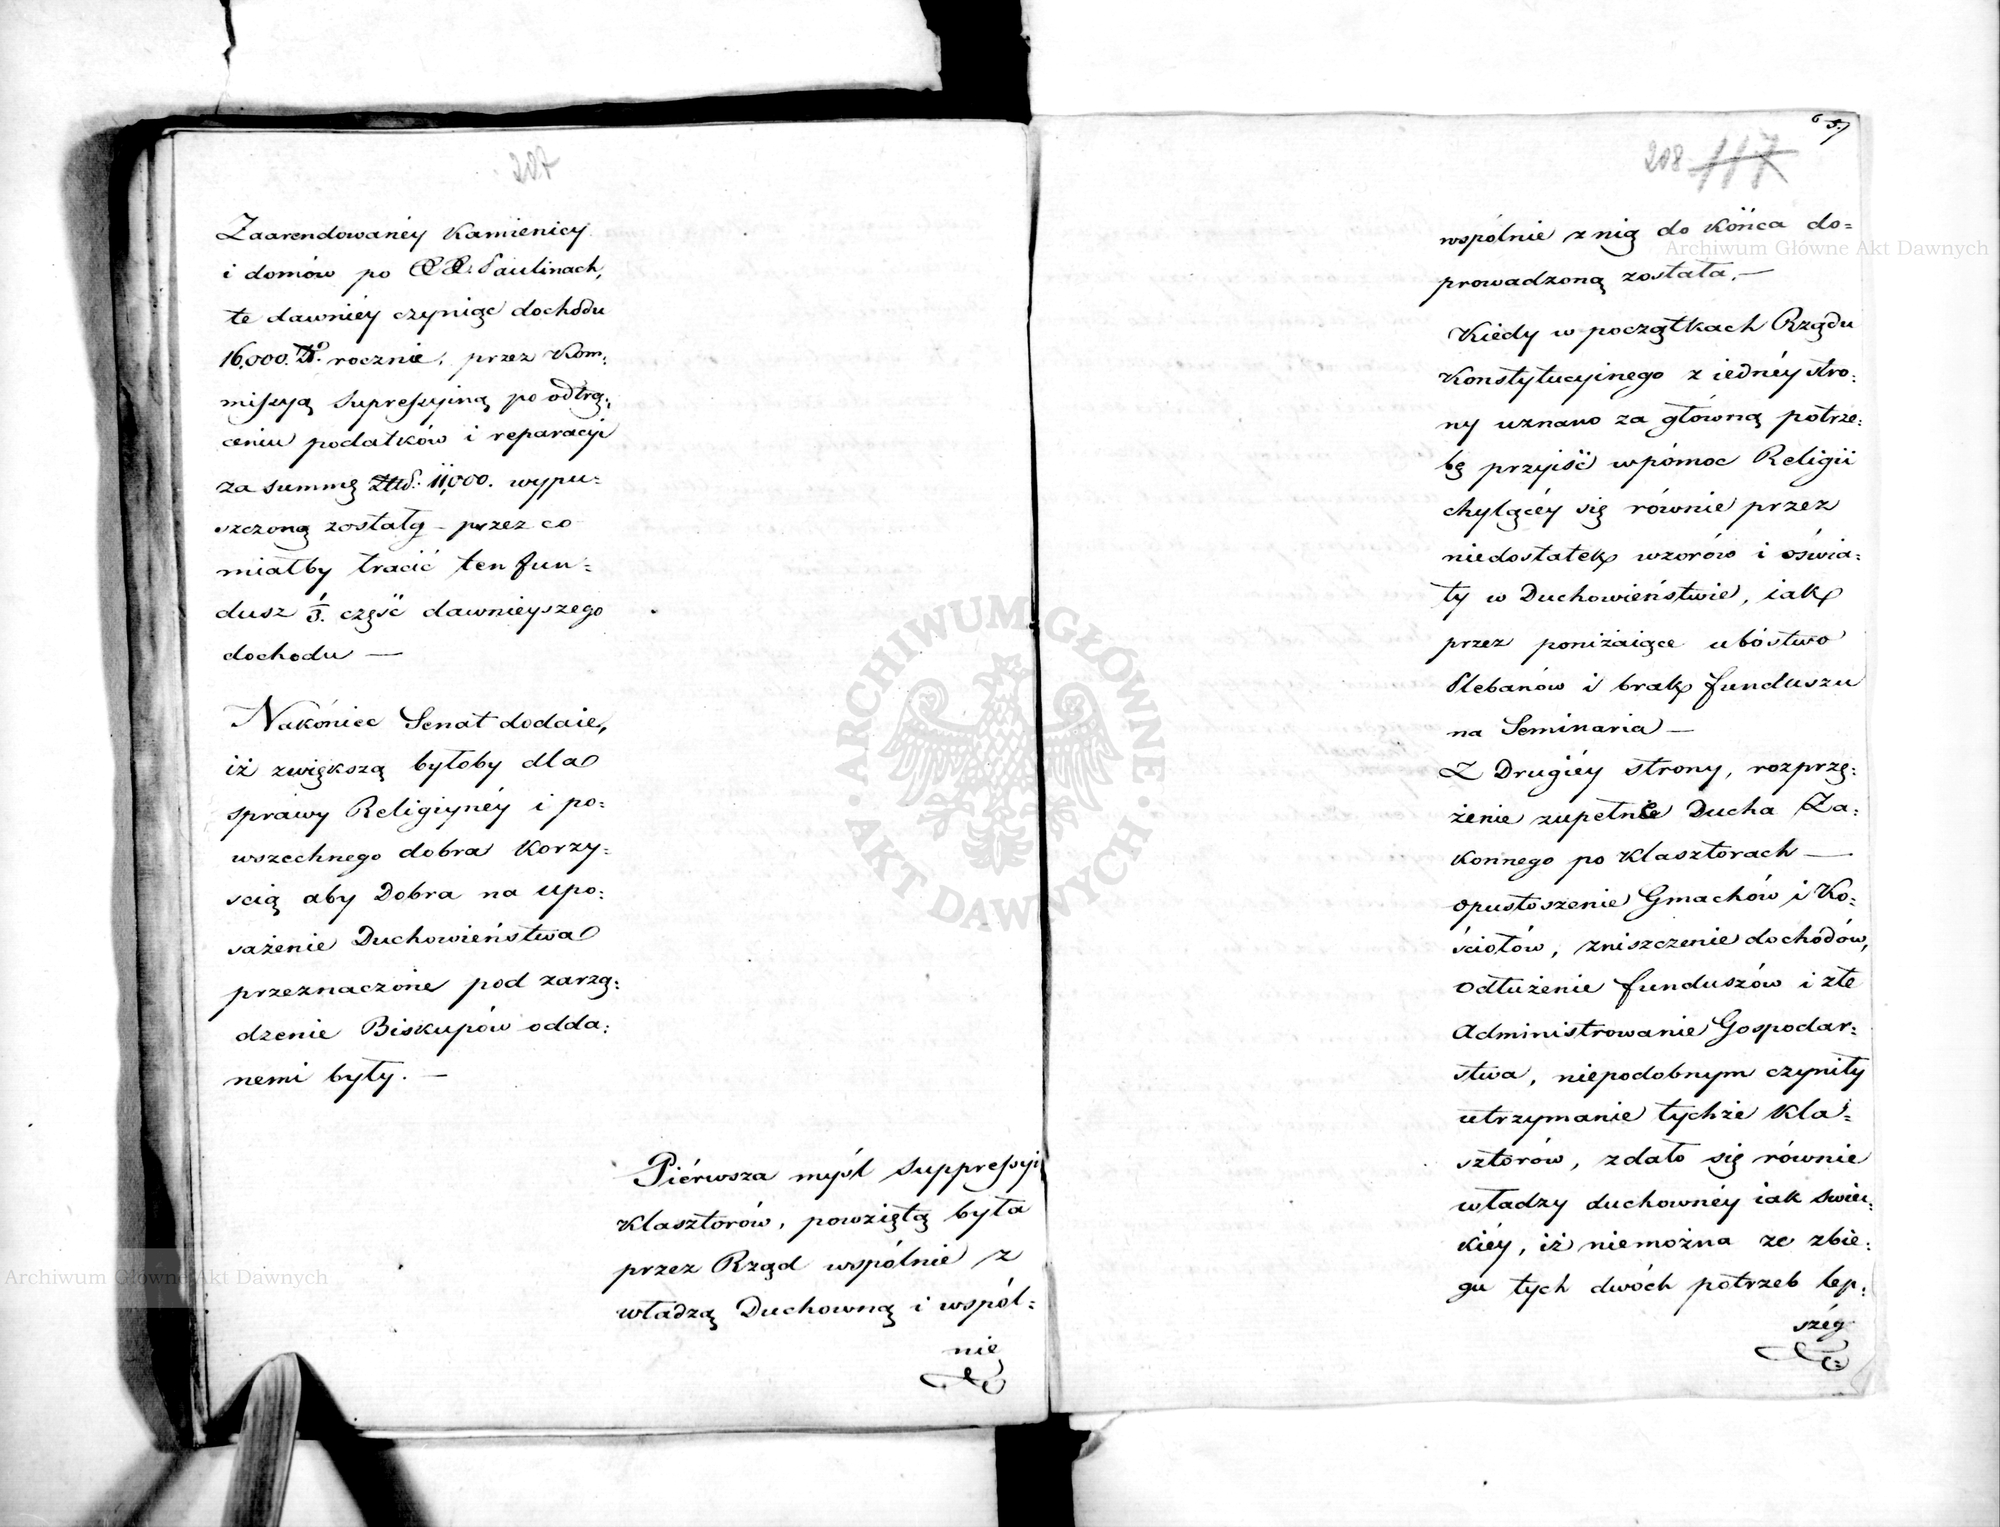 207
Zaarendowanéy Kamienicy
i domów po XX. Paulinach,
te dawniéy czyniąc dochodu
16,000. Złp. rocznie, przez Kom:
missyą Supressyiną po odtrą:
ceniu podatków i reparacyi
za summę 11,000. wypu:
szczoną zostały – przez co
miałby tracić ten fun:
dusz część dawnieyszego
dochodu —
Nakóniec Senat dodaie,
iż zwiększą byłoby dla
sprawy Religiynéy i po:
wszechnego dobra korzy:
scią aby Dobra na upo:
sażenie Duchowieństwa
przeznaczone pod zarzą:
dzenie Biskupów odda:
nemi były. —
Piérwsza myśl suppressyi
Klasztorów, powziętą była
przez Rząd wspólnie z
władzą Duchowną i wspól:
nie
208 117
wspólnie z nią do końca do:
prowadzoną została. —
Kiedy w początkach Rządu
Konstytucyinego z iednéy stro:
ny uznano za główną potrze:
bę przyiść w pómoc Religii
chylącéy się równie przez
niedostatek wzorów i oświa:
ty w Duchowieństwie, iak
przez poniżaiące ubóstwo
Plebanów i brak funduszu
na Seminaria —
Z Drugiéy strony, rozprzę:
żenie zupełnie Ducha Za:
konnego po Klasztorach —
opustoszenie Gmachów i Ko:
ściołów, zniszczenie dochodów,
odłużenie funduszów i złe
Administrowanie Gospodar:
stwa, niepodobnym czyniły
utrzymanie tychże Kla:
sztorów, zdało się równie
władzy duchownéy iak świec:
kiéy, iż niemożna ze zbie:
gu tych dwóch potrzeb lep:
szég
Archiwum Główne Akt Dawnych
Archiwum Główne Akt Dawnych
ARCHIWUM GŁÓWNE AKT DAWNYCH